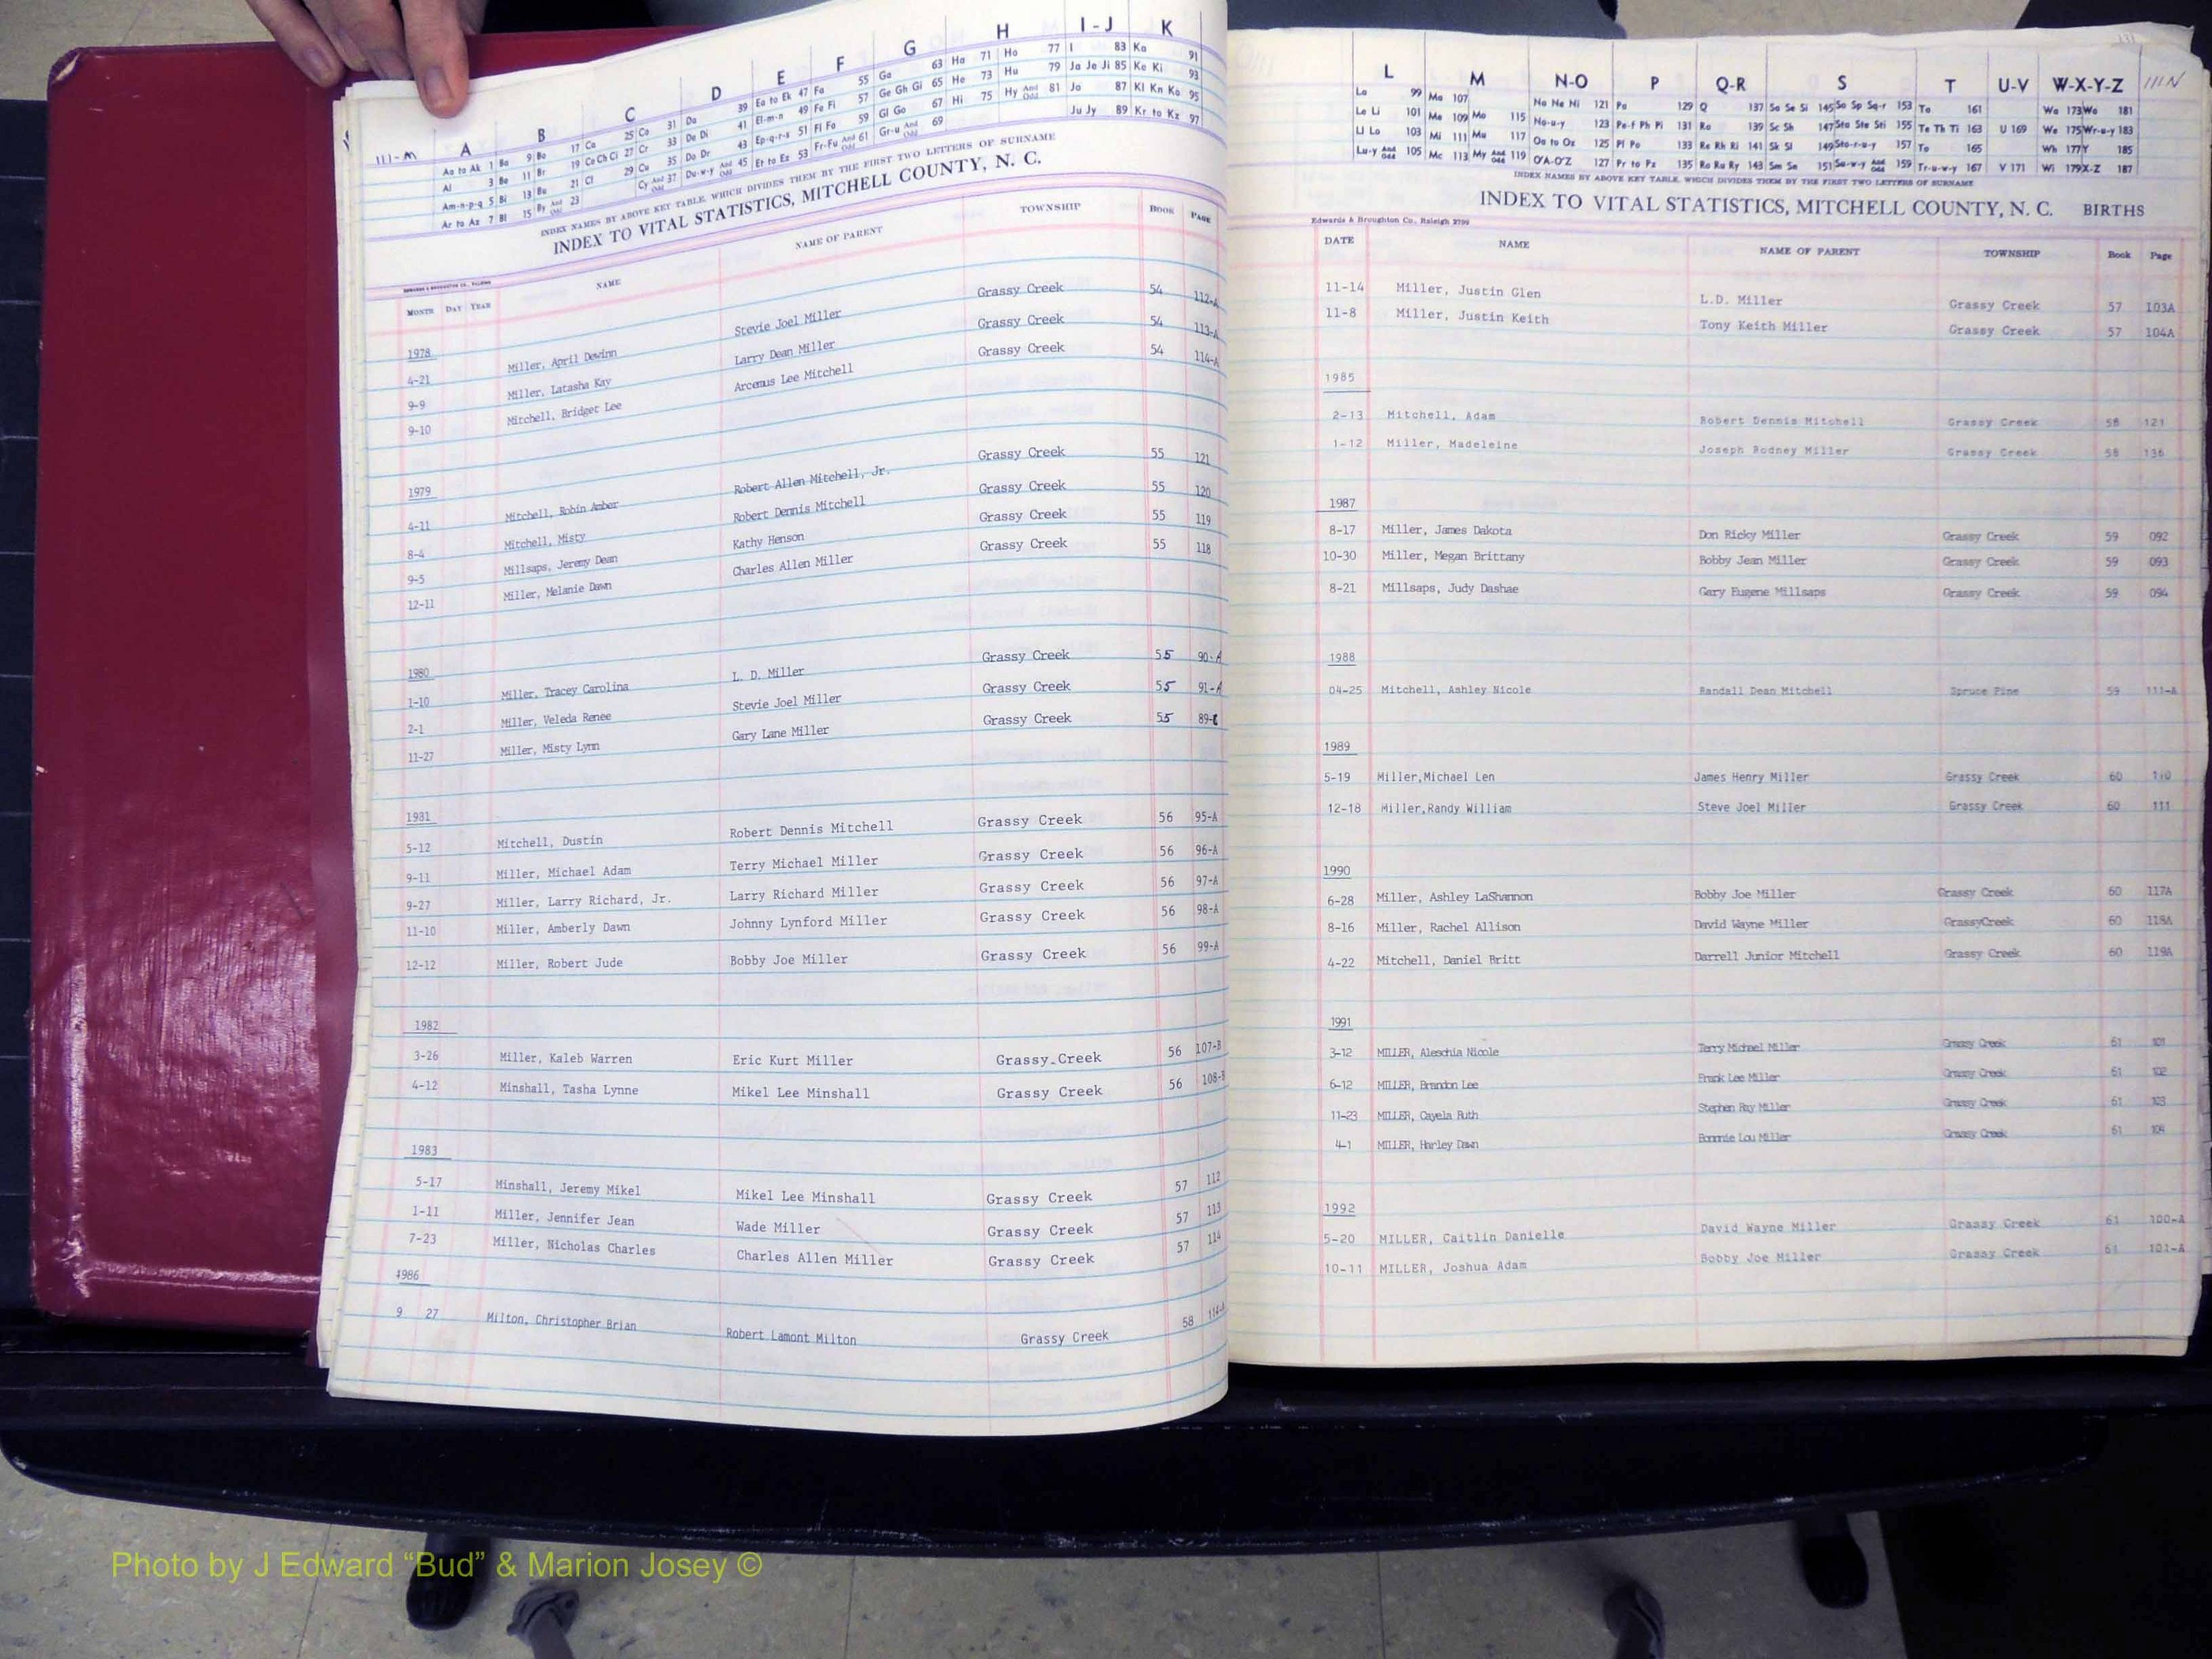 111-M
A B C D E F G H I-J K
Aa to Ak 1 Ba 9 Bo 17 Ca 25 Co 31 Da 39 Ea to Ek 47 Fa 55 Ga 63 Ha 71 Ho 77 I 83 Ka 91
Al 3 Be 11 Br 19 Ce Ch Ci 27 Cr 33 De Di 41 El-m-n 49 Fe Fi 57 Ge Gh Gi 65 He 73 Hu 79 Ja Je Ji 85 Ke Ki 93
Am-n-p-q 5 Bi 13 Bu 21 Cl 29 Cu 35 Do Dr 43 Ep-q-r-s 51 Fl Fo 59 Gl Go 67 Hi 75 Hy And Odd 81 Jo 87 Kl Kn Ko 95
Ar to Az 7 Bl 15 By And Odd 23 Cy And Odd 37 Du-w-y And Odd 45 Et to Ez 53 Fr-Fu And Odd 61 Gr-u And Odd 69 Ju Jy 89 Kr to Kz 97
INDEX NAMES BY ABOVE KEY TABLE, WHICH DIVIDES THEM BY THE FIRST TWO LETTERS OF SURNAME
INDEX TO VITAL STATISTICS, MITCHELL COUNTY, N. C.
MONTH DAY YEAR NAME NAME OF PARENT TOWNSHIP BOOK PAGE
1978
4-21 Miller, April Dewinn Stevie Joel Miller Grassy Creek 54 112-A
9-9 Miller, Latasha Kay Larry Dean Miller Grassy Creek 54 113-A
9-10 Mitchell, Bridget Lee Arcemus Lee Mitchell Grassy Creek 54 114-A
1979
4-11 Mitchell, Robin Amber Robert Allen Mitchell, Jr. Grassy Creek 55 121
8-4 Mitchell, Misty Robert Dennis Mitchell Grassy Creek 55 120
9-5 Millsaps, Jeremy Dean Kathy Henson Grassy Creek 55 119
12-11 Miller, Melanie Dawn Charles Allen Miller Grassy Creek 55 118
1980
1-10 Miller, Tracey Carolina L. D. Miller Grassy Creek 55 90-A
2-1 Miller, Veleda Renee Stevie Joel Miller Grassy Creek 55 91-A
11-27 Miller, Misty Lynn Gary Lane Miller Grassy Creek 55
1981
5-12 Mitchell, Dustin Robert Dennis Mitchell Grassy Creek 56 95-A
9-11 Miller, Michael Adam Terry Michael Miller Grassy Creek 56 96-A
9-27 Miller, Larry Richard, Jr. Larry Richard Miller Grassy Creek 56 97-A
11-10 Miller, Amberly Dawn Johnny Lynford Miller Grassy Creek 56 98-A
12-12 Miller, Robert Jude Bobby Joe Miller Grassy Creek 56 99-A
1982
3-26 Miller, Kaleb Warren Eric Kurt Miller Grassy Creek 56 107-B
4-12 Minshall, Tasha Lynne Mikel Lee Minshall Grassy Creek 56 108-B
1983
5-17 Minshall, Jeremy Mikel Mikel Lee Minshall Grassy Creek 57 112
1-11 Miller, Jennifer Jean Wade Miller Grassy Creek 57 113
7-23 Miller, Nicholas Charles Charles Allen Miller Grassy Creek 57 114
1986
9 27 Milton, Christopher Brian Robert Lamont Milton Grassy Creek 58 114-A
111N
L M N-O P Q-R S T U-V W-X-Y-Z
La 99 Ma 107 Na Ne Ni 121 Pa 129 Q 137 Sa Se Si 145 So Sp Sq-r 153 Ta 161 Wa 173 Wo 181
Le Li 101 Me 109 Mo 115 No-u-y 123 Pe-f Ph Pi 131 Ra 139 Sc Sh 147 Sta Ste Sti 155 Te Th Ti 163 U 169 We 175 Wr-u-y 183
Ll Lo 103 Mi 111 Mu 117 Oa to Ox 125 Pl Po 133 Re Rh Ri 141 Sk Sl 149 Sto-r-u-y 157 To 165 Wh 177 Y 185
Lu-y And Odd 105 Mc 113 My And Odd 119 O'A-O'Z 127 Pr to Pz 135 Ro Ru Ry 143 Sm Sn 151 Su-w-y And Odd 159 Tr-u-w-y 167 V 171 Wi 179 X-Z 187
INDEX NAMES BY ABOVE KEY TABLE, WHICH DIVIDES THEM BY THE FIRST TWO LETTERS OF SURNAME
INDEX TO VITAL STATISTICS, MITCHELL COUNTY, N. C. BIRTHS
Edwards & Broughton Co., Raleigh 2799
DATE NAME NAME OF PARENT TOWNSHIP Book Page
11-14 Miller, Justin Glen L.D. Miller Grassy Creek 57 103A
11-8 Miller, Justin Keith Tony Keith Miller Grassy Creek 57 104A
1985
2-13 Mitchell, Adam Robert Dennis Mitchell Grassy Creek 58 121
1-12 Miller, Madeleine Joseph Rodney Miller Grassy Creek 58 136
1987
8-17 Miller, James Dakota Don Ricky Miller Grassy Creek 59 092
10-30 Miller, Megan Brittany Bobby Jean Miller Grassy Creek 59 093
8-21 Millsaps, Judy Dashae Gary Eugene Millsaps Grassy Creek 59 094
1988
04-25 Mitchell, Ashley Nicole Randall Dean Mitchell Spruce Pine 59 111-A
1989
5-19 Miller,Michael Len James Henry Miller Grassy Creek 60 110
12-18 Miller,Randy William Steve Joel Miller Grassy Creek 60 111
1990
6-28 Miller, Ashley LaShannon Bobby Joe Miller Grassy Creek 60 117A
8-16 Miller, Rachel Allison David Wayne Miller GrassyCreek 60 118A
4-22 Mitchell, Daniel Britt Darrell Junior Mitchell Grassy Creek 60 119A
1991
3-12 MILLER, Aleschia Nicole Terry Michael Miller Grassy Creek 61 101
6-12 MILLER, Brandon Lee Frank Lee Miller Grassy Creek 61 102
11-23 MILLER, Cayela Ruth Stephen Ray Miller Grassy Creek 61 103
4-1 MILLER, Harley Dawn Bonnnie Lou Miller Grassy Creek 61 104
1992
5-20 MILLER, Caitlin Danielle David Wayne Miller Grassy Creek 61 100-A
10-11 MILLER, Joshua Adam Bobby Joe Miller Grassy Creek 61 101-A
Photo by J Edward “Bud” & Marion Josey ©